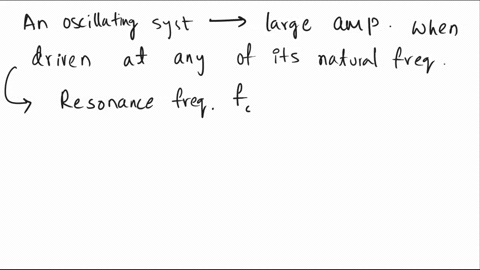 An oscillating syst → large amp. when
driven at any of its natural freq.
↳ Resonance freq. f